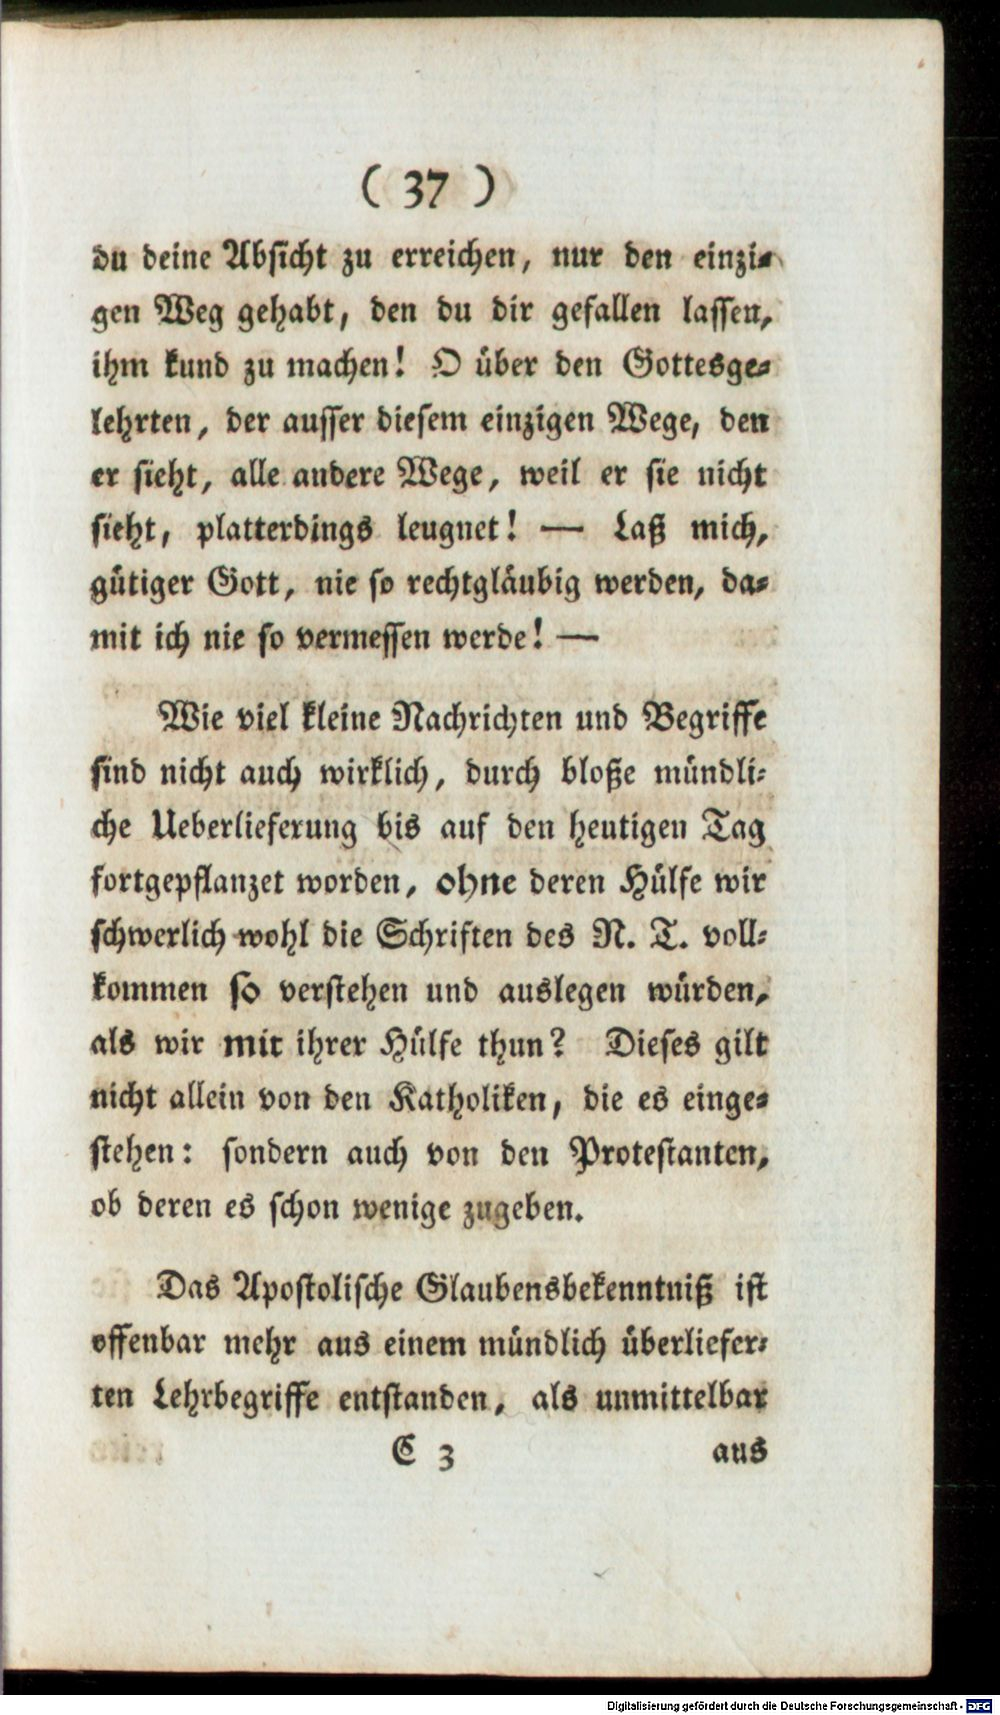 ( 37 )
du deine Absicht zu erreichen, nur den einzi-
gen Weg gehabt, den du dir gefallen lassen,
ihm kund zu machen! O über den Gottesge-
lehrten, der ausser diesem einzigen Wege, den
er sieht, alle andere Wege, weil er sie nicht
sieht, platterdings leugnet! — Laß mich,
gütiger Gott, nie so rechtgläubig werden, da-
mit ich nie so vermessen werde! —
Wie viel kleine Nachrichten und Begriffe
sind nicht auch wirklich, durch bloße mündli-
che Ueberlieferung bis auf den heutigen Tag
fortgepflanzet worden, ohne deren Hülfe wir
schwerlich wohl die Schriften des N. T. voll-
kommen so verstehen und auslegen würden,
als wir mit ihrer Hülfe thun? Dieses gilt
nicht allein von den Katholiken, die es einge-
stehen: sondern auch von den Protestanten,
ob deren es schon wenige zugeben.
Das Apostolische Glaubensbekenntniß ist
offenbar mehr aus einem mündlich überliefer-
ten Lehrbegriffe entstanden, als unmittelbar
C 3 aus
Digitalisierung gefördert durch die Deutsche Forschungsgemeinschaft - DFG